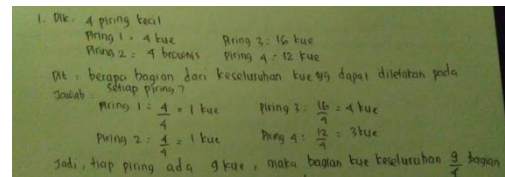 1. Dik : 4 piring kecil
Piring 1 : 4 kue Piring 3 : 16 kue
Piring 2 : 4 brownis Piring 4 : 12 kue
Dit : berapa bagian dari keseluruhan kue yg dapat diletakan pada
setiap piring ?
Jawab :
Piring 1 : 4/4 = 1 kue Piring 3 : 16/4 = 4 kue
Piring 2 : 4/4 = 1 kue Piring 4 : 12/4 = 3 kue
Jadi, tiap piring ada 9 kue, maka bagian kue keseluruhan 9/4 bagian